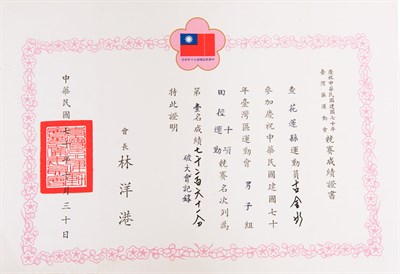 慶祝中華民國建國七十年
臺灣區運動會
競賽成績證書
查花蓮縣運動員古金水
參加慶祝中華民國建國七十
年臺灣區運動會男子組
田徑運動十項競賽名次列為
第壹名成績七千二百六十一分
破大會記錄
特此證明
會長 林洋港
中華民國七十年十月三十日